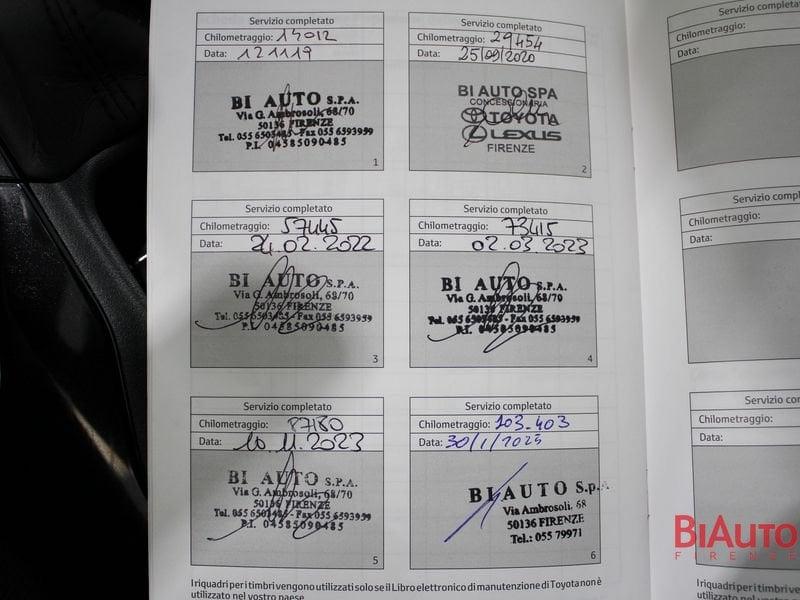 Servizio completato
Chilometraggio: 14012
Data: 121119
BI AUTO S.P.A.
Via G. Ambrosoli, 68/70
50136 FIRENZE
Tel. 055 6503485 - Fax 055 6593959
P.I. 04385090485
1
Servizio completato
Chilometraggio: 29454
Data: 25/09/2020
BI AUTO SPA
CONCESSIONARIA
TOYOTA
LEXUS
FIRENZE
2
Servizio completato
Chilometraggio: 57445
Data: 24.02.2022
BI AUTO S.P.A.
Via G. Ambrosoli, 68/70
50136 FIRENZE
Tel. 055 6503485 - Fax 055 6593959
P.I. 04385090485
3
Servizio completato
Chilometraggio: 73415
Data: 02.03.2023
BI AUTO S.P.A.
Via G. Ambrosoli, 68/70
50136 FIRENZE
Tel. 055 6503485 - Fax 055 6593959
P.I. 04385090485
4
Servizio completato
Chilometraggio: 87180
Data: 10.11.2023
BI AUTO S.P.A.
Via G. Ambrosoli, 68/70
50136 FIRENZE
Tel. 055 6503485 - Fax 055 6593959
P.I. 04385090485
5
Servizio completato
Chilometraggio: 103.403
Data: 30/1/2025
BI AUTO S.p.A.
Via Ambrosoli. 68
50136 FIRENZE
Tel.: 055 79971
6
I riquadri per i timbri vengono utilizzati solo se il Libro elettronico di manutenzione di Toyota non è
utilizzato nel vostro paese
Servizio
Chilometraggio:
Data:
Servizio compl
Chilometraggio:
Data:
Servizio co
Chilometraggio:
Data:
BIAUTO
FIRENZE
I riquadri per i timbri
utilizzato nel vo